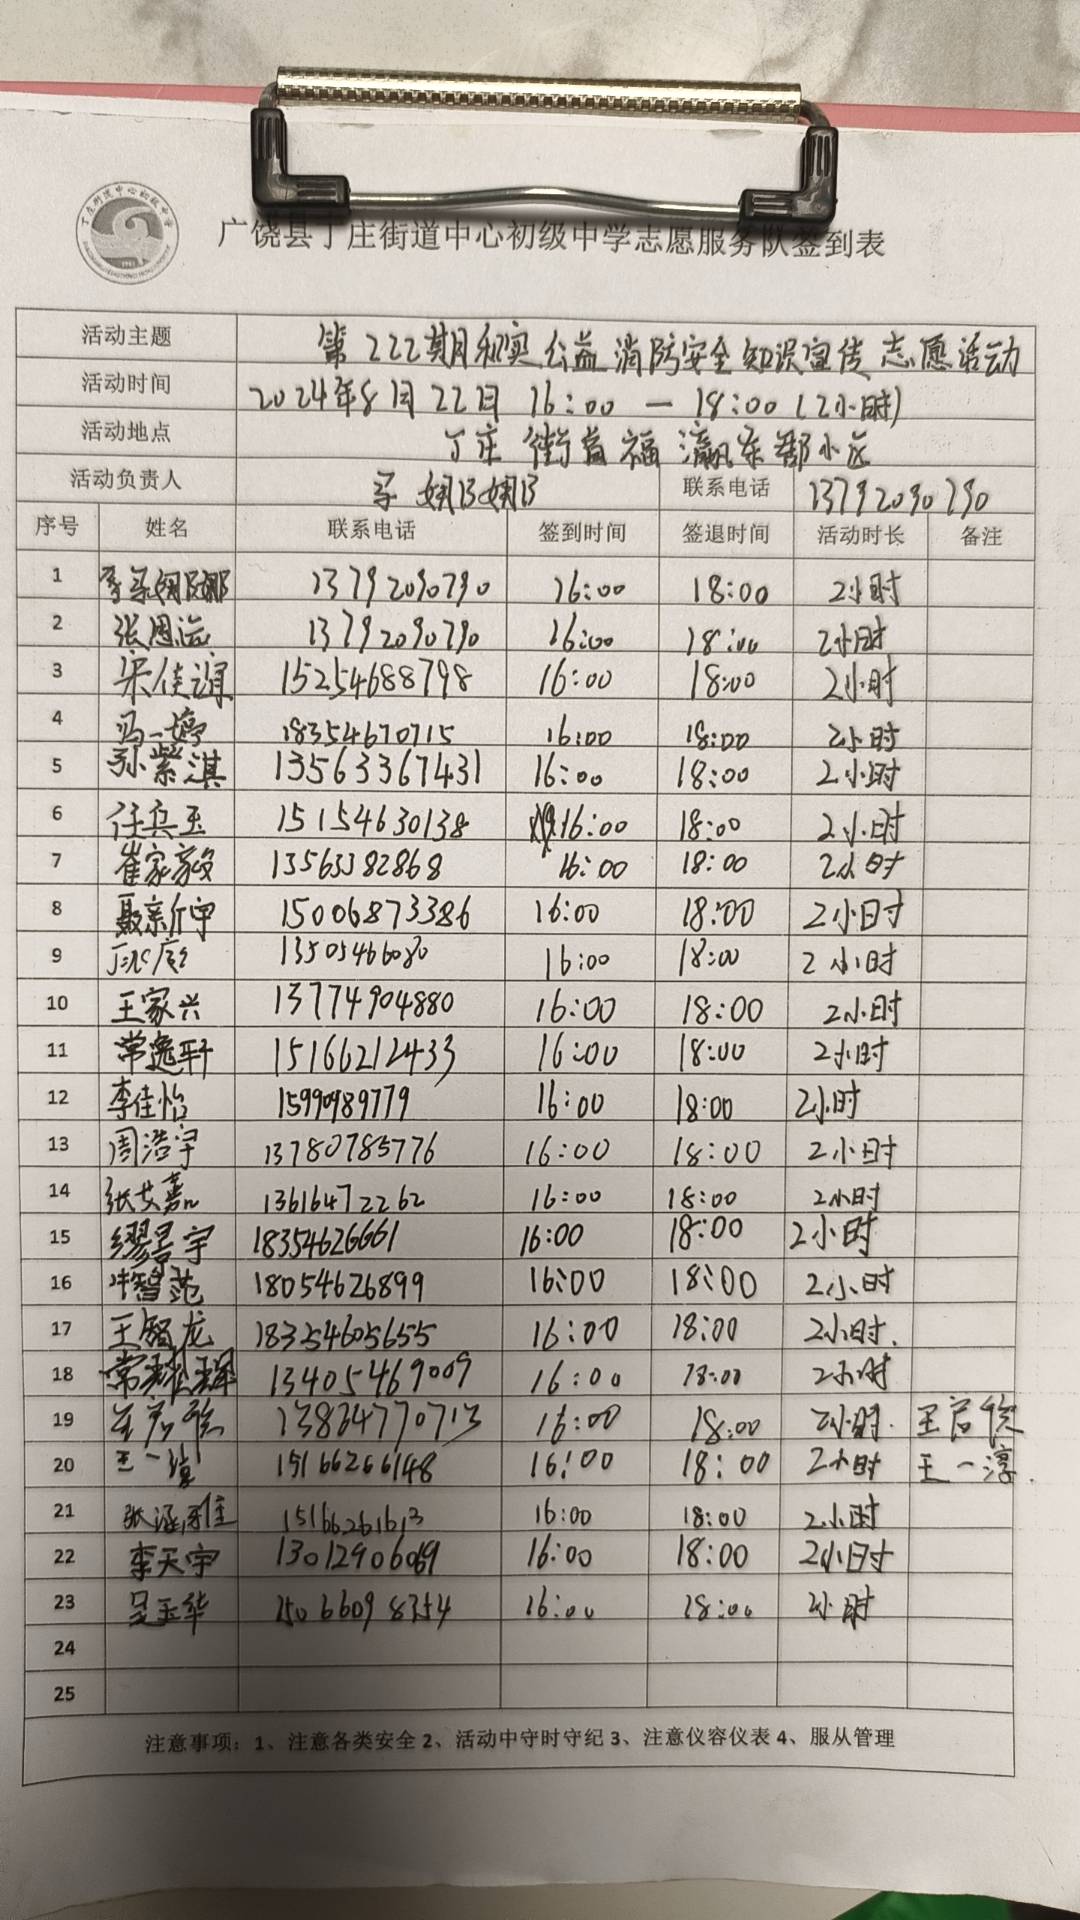 广饶县丁庄街道中心初级中学志愿服务队签到表
活动主题 第222期和实公益消防安全知识宣传志愿活动
活动时间 2024年8月22日 16:00—18:00(2小时)
活动地点 丁庄街首福瀛东郡小区
活动负责人 联系电话 13792090790
序号 姓名 联系电话 签到时间 签退时间 活动时长 备注
1 13792090790 16:00 18:00 2小时
2 张恩 13792090790 16:00 18:00 2小时
3 宋佳 15254688798 16:00 18:00 2小时
4 冯一婷 18354670715 16:00 18:00 2小时
5 孙紫淇 13563367431 16:00 18:00 2小时
6 任兵玉 15154630138 16:00 18:00 2小时
7 崔家毅 13563382868 16:00 18:00 2小时
8 聂新宇 15006873386 16:00 18:00 2小时
9 13505466080 16:00 18:00 2小时
10 王家兴 13774904880 16:00 18:00 2小时
11 常逸轩 15166212433 16:00 18:00 2小时
12 李佳怡 15990989779 16:00 18:00 2小时
13 周浩宇 13780785776 16:00 18:00 2小时
14 张艾嘉 13616472262 16:00 18:00 2小时
15 缪景宇 18354626661 16:00 18:00 2小时
16 牛智范 18054626899 16:00 18:00 2小时
17 王智龙 183254605655 16:00 18:00 2小时.
18 常耀辉 13405469009 16:00 18:00 2小时
19 13834770713 16:00 18:00 2小时. 王启
20 王一淳 15166266148 16:00 18:00 2小时 王一淳.
21 张涵 15166261613 16:00 18:00 2小时
22 李天宇 13012906069 16:00 18:00 2小时
23 吴玉华 15066098354 16:00 18:00 2小时
24
25
注意事项：1、注意各类安全 2、活动中守时守纪 3、注意仪容仪表 4、服从管理